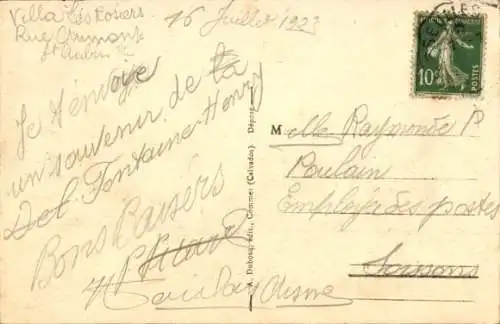 Villa les Rosiers
Rue Gumont
St Aubin s/
16 Juillet 1923
Je t'envoie
un souvenir de la
Del. Fontaine Henry
Bons Baisers
Picard
Aisne
A. Dubosq, édit., Commer (Calvados) Déposé
Melle Raymonde P
Poulain
Employée des postes
Soissons
10c
POSTES